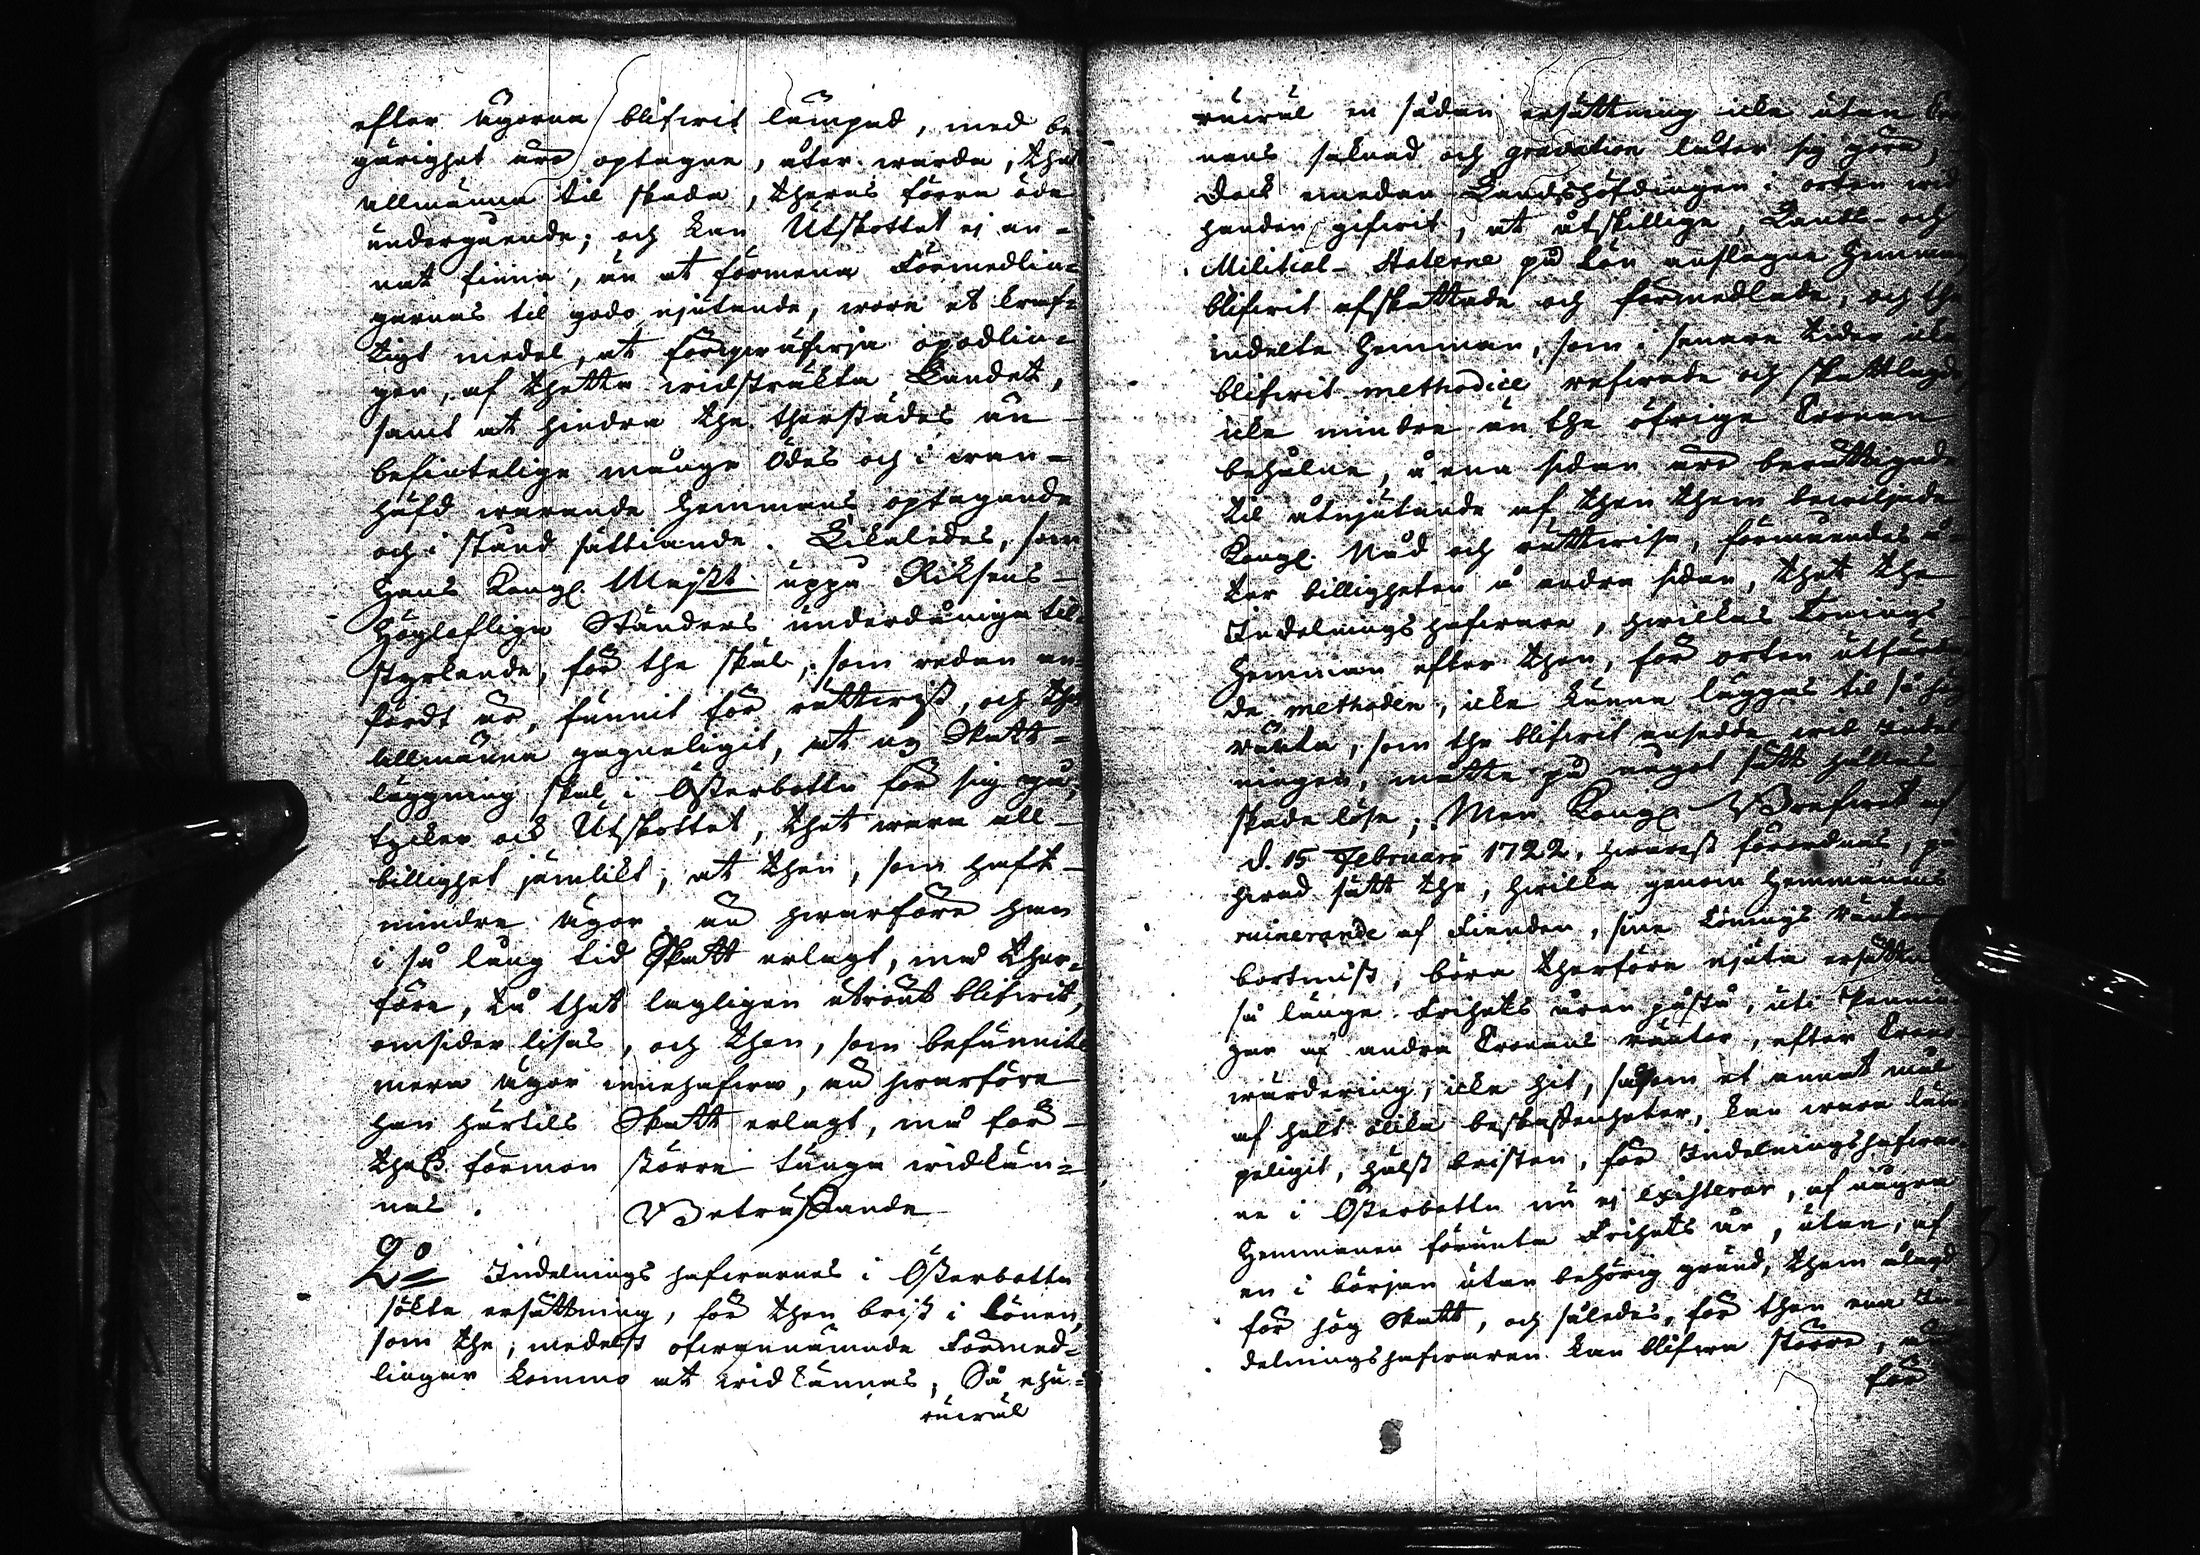 efter ägorna blifwit lämpad, med be-
gärighet äro optagne, åter warda, thet
allmänna til skada, theras förra öde
undergående; och kan Utskottet ej an-
nat finna, än at förmena Förmedlin-
garnas til godo njutande, wore et kraf-
tigt medel, at förqwäfwja opodlin-
gen, af thetta widsträkta Landet,
samt at hindra the therstädes än
befintelige många Ödes och i wan-
häfd warande Hemmans optagande
och i stånd sättiande. Likaledes, som
Hans Kongl. Majst uppå Riksens
Högloflige Ständers underdåniga til-
styrkande, för the skäl, som redan an-
fördt är, funnit för rättwist, och thet
allmänna gagneligit, at ny Skatt-
läggning skal i Österbottn för sig gå,
tycker ock Utskottet, thet wara all
billighet jämlikt, at then, som haft
mindre ägor, än hwarföre han
i så lång tid Skatt erlagt, må ther-
före, då thet lagligen utrönt blifwit,
omsider lisas, och then, som befunnits
mera ägor innehafwa, än hwarföre
han härtils Skatt erlagt, må för
theß förmon större tunga widkän-
nas. Beträffande
2o Indelnings hafwarnas i Österbottn
sökta ersättning, för then brist i Lönen,
som the, medelst ofwannämnde Förmed-
lingar komma at widkännas, Så ehu-
ruwäl
ruwäl en sådan ersättning icke utan Cro
nans saknad och gravation låter sig göra,
Dock emedan Landshöfdingen i orten wid
handen gifwit, at åtskillige, Lands- och
Militial-Staterne på Lön anslagne Hemman
blifwit afskattade och förmedlade, och the
indelte Hemman, som i senare tider icke
blifwit methodice refwade och skattlagde,
icke mindre än the öfrige Cronan
behåldne, å ena sidan äro berättigade
til åtnjutande af then them bewiljade
Kongl. Nåd och rättwisa, förmåendes å-
ter billigheten å andra sidan, thet the
Indelningshafware, hwilkas Lönings
Hemman efter then, för orten utfärda
de methoden, icke kunna läggas til så hög
ränta, som the blifwit ansedde wid Indel
ningen, måtte på något sätt hållas
skadelöse; Men Kongl. Brefwet af
d. 15 Februarii 1722, hwarest förordnas, på
hwad sätt the, hwilka genom Hemmanens
ruinerande af Fienden, sine Lönings räntor
bortmist, böra therföre njuta ersättning
så länge Frihets åren påstå, uti Pennin
gar af andra Cronans räntor, efter Crono
wärdering, icke hit, såsom et annat mål
af helt olika beskaffenheter, kan wara läm-
peligit, hälst bristen, för Indelningshafwar
ne i Österbottn nu ej existerar, af någre
Hemmanen förunte Frihets år, utan, af
en i början utan behörig grund, them ålagd
för hög Skatt, och således, för then ena In-
delningshafwaren kan blifwa större,
för